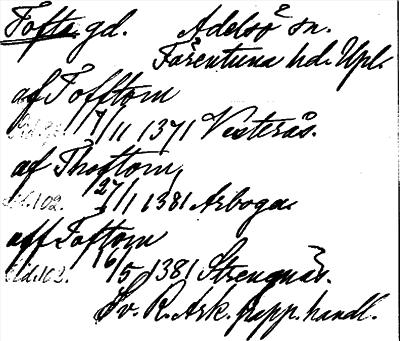 Tofta gd. Adelsö sn.
Färentuna hd. Upl.
af Tofftom
17/11 1371 Vesterås.
af Thoftom
Sid. 102. 27/1 1381 Arboga.
aff Toftom
Sid. 102. 16/5 1381 Strengnäs.
Sv. R. Ark. papp. handl.